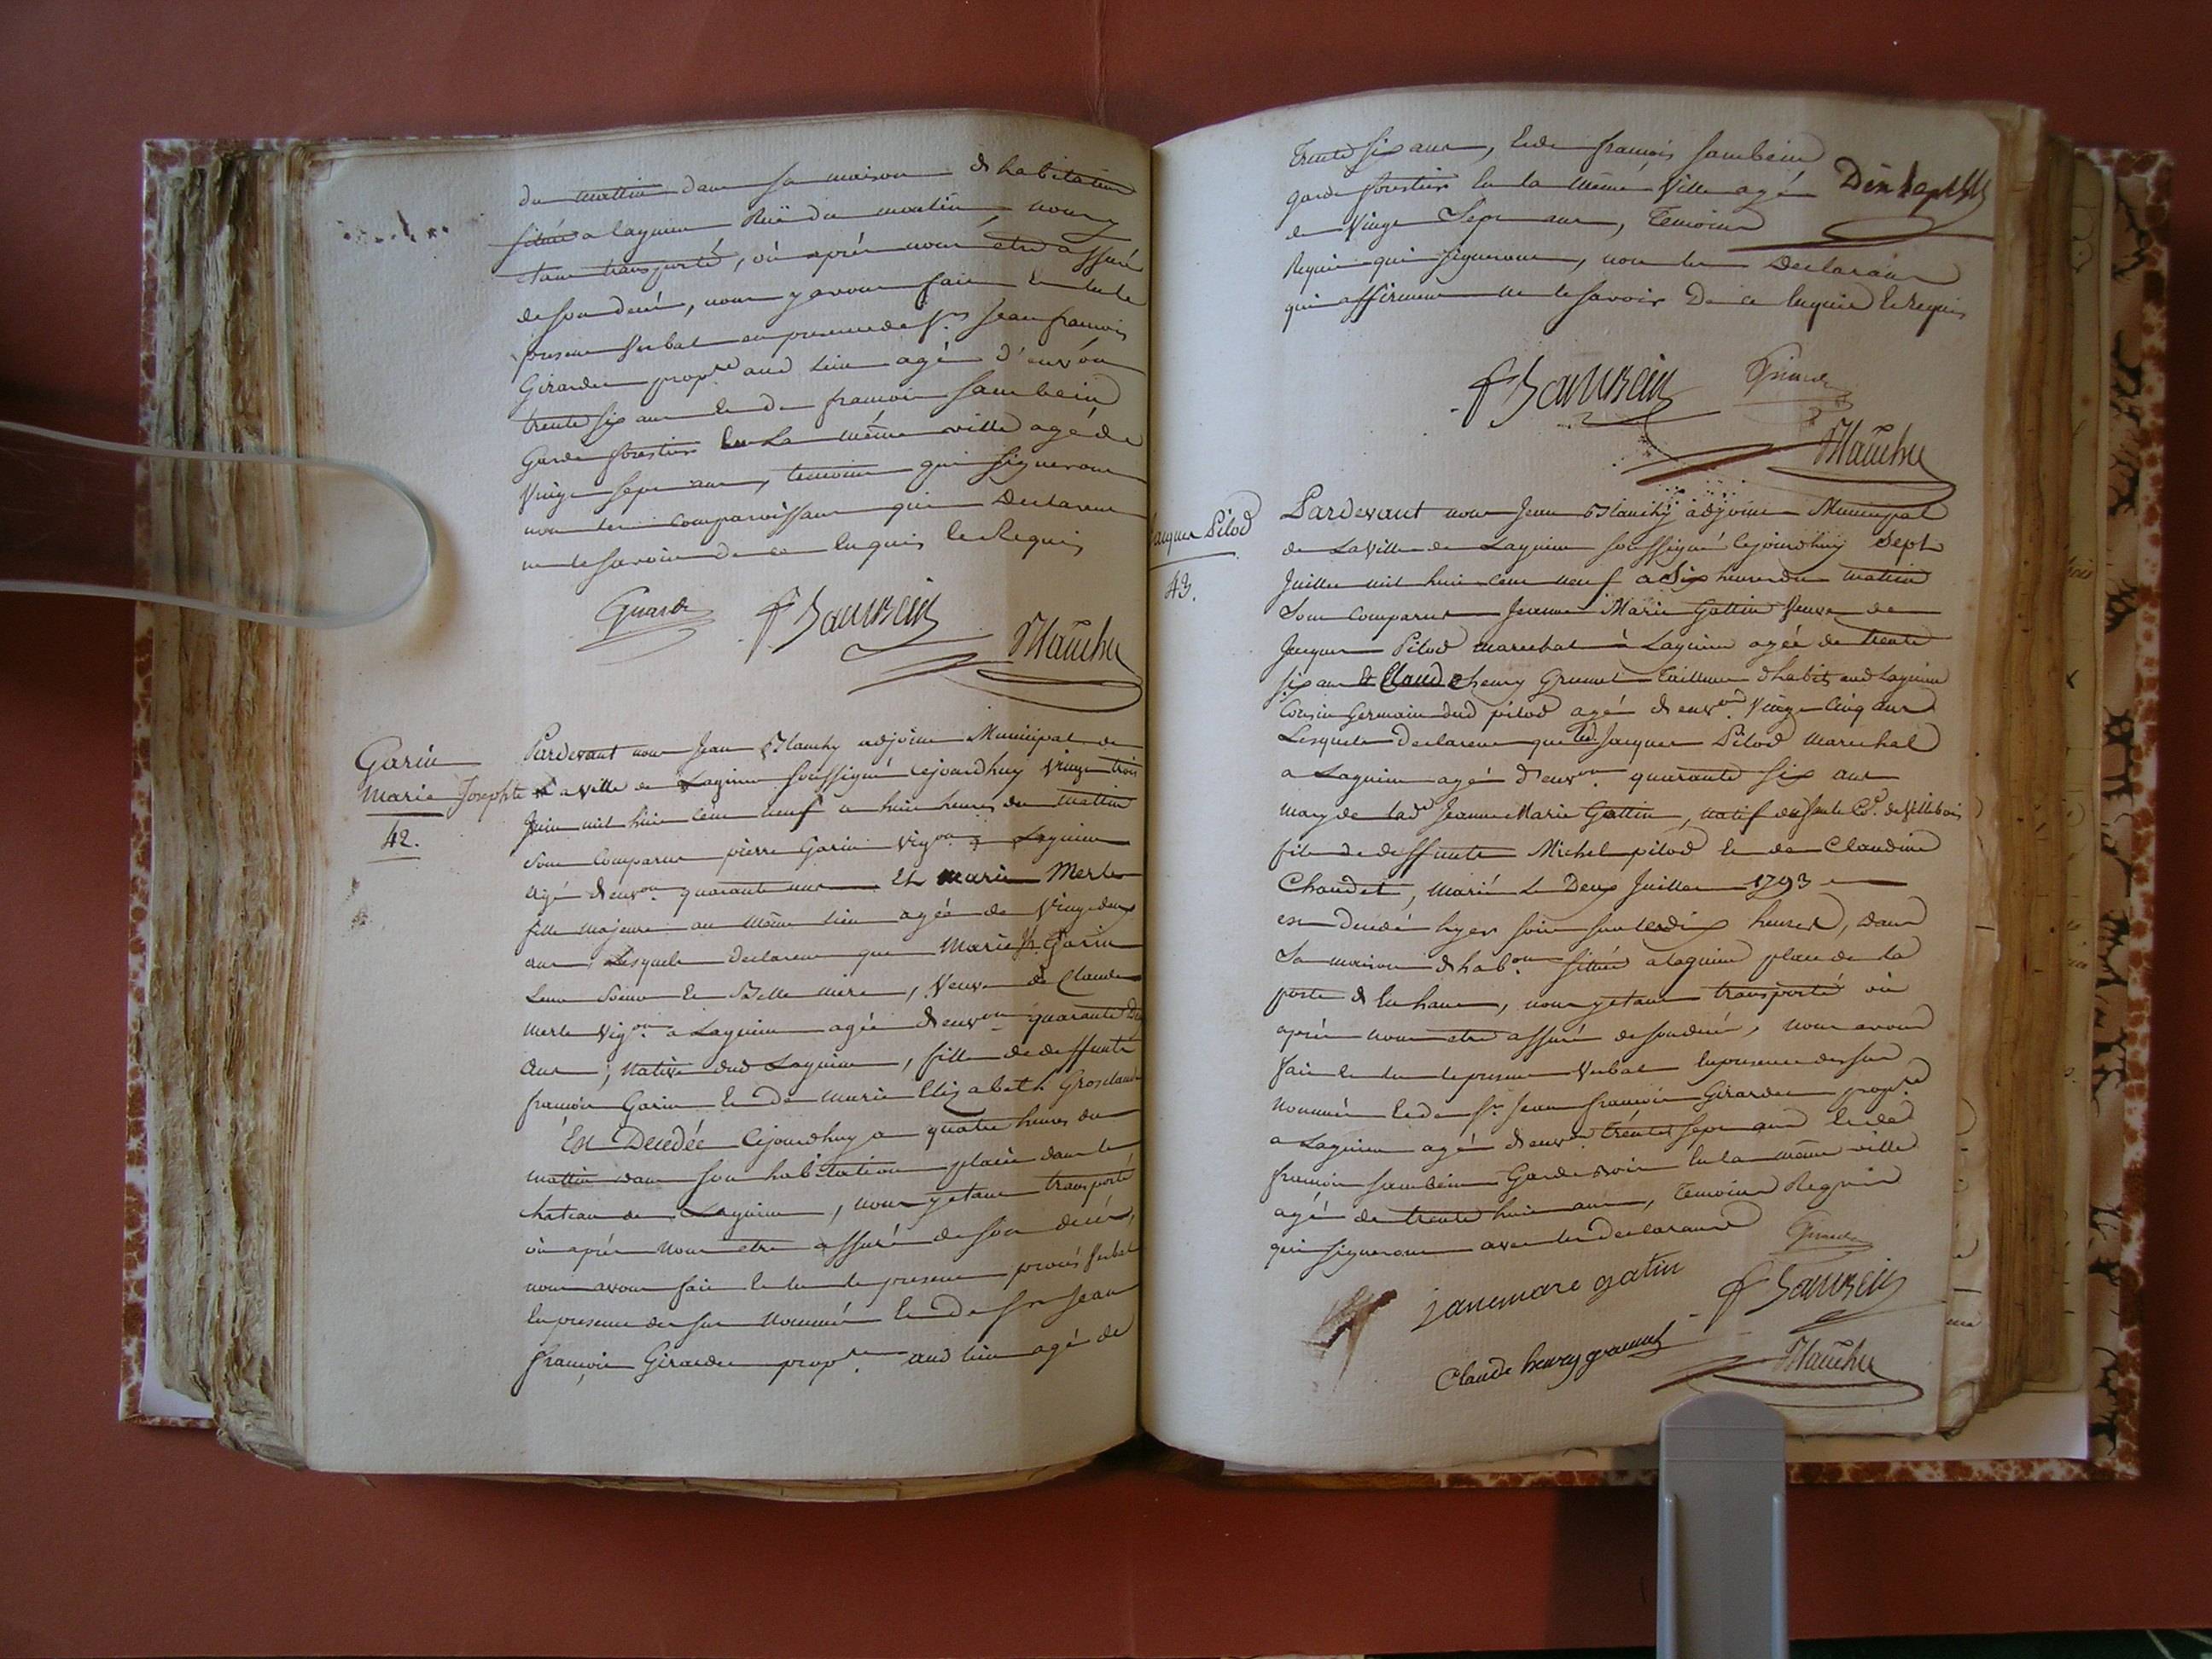 du mattin dans sa maison d'habitation
située a lagnieu Ruë du moulin, nous y
étant transporté, où après nous être assuré
de son decés, nous y avons fait et lu le
present verbal en presence de Sr. Jean francois
Girardet propre. aud. lieu agé d'environ
trente six ans et de francois Sambein
Garde forestier en La même ville agé de
Vingt sept ans, temoins qui signeront
non les comparoissants qui Declarent
ne le savoir de ce enquis et Requis
Girardet
f Sambein
Blanchy
Garin
Marie Josephte
42.
Pardevant nous Jean Blanchy adjoint Municipal de
La ville de Lagnieu soussigné cejourdhuy Vingt trois
Juin mil huit cent neuf a huit heures du mattin
Sont Comparus pierre Garin Vigon. a Lagnieu
agé d'envon. quarante ans Et marie Merle
fille majeure au même lieu agée de Vingt deux
ans, Lesquels declarent que Marie Jh. Garin
Leur Soeur et Belle mere, Veuve de Claude
Merle Vigon. a Lagnieu agée d'envon. quarante
ans, native dud. Lagnieu, fille de deffunts
francois Garin et De marie Elizabeth Grosclaude
Est Decedée Cejourdhuy a quatre heures du
mattin dans son habitation placée dans le
chateau de Lagnieu, nous y etant transporté
où après Nous etre assuré de son decés,
nous avons fait et lu le present procès verbal
en presence des sus Nommés et De Sr. Jean
françois Girardet propre. aud. lieu agé de
trente six ans, et de françois Sambein
garde forestier en la même Ville agé
de Vingt Sept ans, Temoins
Requis qui signeront, non les Declarans
qui affirment ne le savoir De ce enquis et Requis
f Sambein
Girardet
Blanchy
Jacques Pilod
43.
Pardevant nous Jean Blanchy adjoint Municipal
de La Ville de Lagnieu soussigné cejourdhuy Sept
Juillet mil huit cent neuf a Six heures du matin
Sont Comparus Jeanne Marie Gattin Veuve de
Jacques Pilod marechal à Lagnieu agée de trente
six ans & Claude henry Grumet Tailleur d'habits aud. Lagnieu
Cousin Germain dud. pilod agé d'envon. Vingt Cinq ans
Lesquels Declarent que led. Jacques Pilod Marechal
a Lagnieu agé d'envon. quarante six ans
mary de lad. Jeanne Marie Gattin, natif de Ce. de Villebois
fils de deffunts Michel pilod et de Claudine
Chaudet, Marié Le Deux Juillet 1793
est Decedé hyer soir sur les dix heures, dans
Sa maison d'habon. située a lagnieu place de la
porte d'en haut, nous y etant transporté où
après nous etre assuré de son decés, nous avons
fait et lu le present Verbal en presence des sus
Nommés et de Sr. Jean francois Girardet propre.
a Lagnieu agé d'environ trente sept ans et de
francois Sambein Garde bois en la même ville
agé de trente huit ans, Temoins Requis
qui signeront avec les Declarants
Girardet
janemare gatin
f Sambein
Claude henry grumet
Blanchy